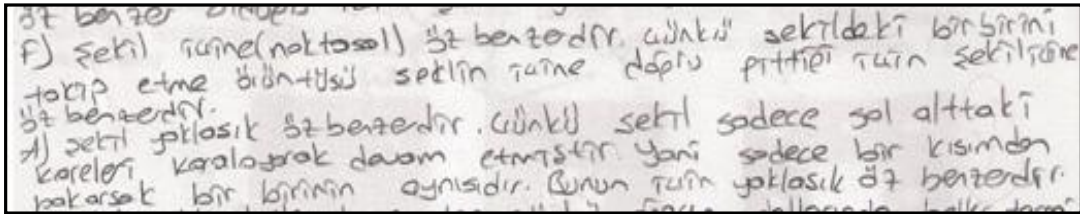 öz benzer
F) Şekil içine(noktasal) öz benzerdir. Çünkü şekildeki birbirini
takip etme örüntüsü şeklin içine doğru gittiği için şekil içine
öz benzerdir.
A) Şekil yaklaşık öz benzerdir. Çünkü şekil sadece sol alttaki
kareleri karalayarak devam etmiştir. Yani sadece bir kısımdan
bakarsak bir birinin aynısıdır. Bunun için yaklaşık öz benzerdir.